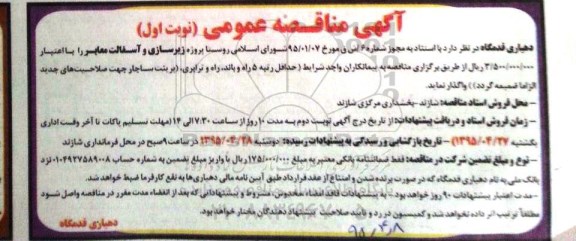 آگهی مناقصه عمومی (نوبت اول)
دهیاری قدمگاه در نظر دارد با استناد به مجوز شماره ۶ س ق مورخ ۹۵/۰۱/۰۷ شورای اسلامی روستا پروژه زیرسازی و آسفالت معابر را با اعتبار
۳/۵۰۰/۰۰۰/۰۰۰ ریال از طریق برگزاری مناقصه به پیمانکاران واجد شرایط (حداقل رتبه ۵ راه و باند، راه و ترابری، (پرینت ساجار جهت صلاحیت‌های جدید
الزاما ضمیمه گردد)) واگذار نماید.
– محل فروش اسناد مناقصه: شازند -بخشداری مرکزی شازند
– زمان فروش اسناد و دریافت پیشنهادات: از تاریخ درج آگهی نوبت دوم به مدت ۱۰ روز از ساعت ۷:۳۰ الی ۱۴ (مهلت تسلیم پاکات تا آخر وقت اداری
یکشنبه ۱۳۹۵/۰۴/۲۷) – تاریخ بازگشایی و رسیدگی به پیشنهادات رسیده: دوشنبه ۱۳۹۵/۰۴/۲۸ در ساعت ۹ صبح در محل فرمانداری شازند
– نوع و مبلغ تضمین شرکت در مناقصه: فقط ضمانتنامه بانکی معتبر به مبلغ ۱۷۵/۰۰۰/۰۰۰ ریال یا واریز مبلغ تضمین به شماره حساب ۰۱۰۴۹۲۷۵۸۹۰۰۸ نزد
بانک ملی به نام دهیاری قدمگاه که در صورت برنده شدن و امتناع از عقد قرارداد طبق آیین نامه مالی دهیاری‌ها به نفع کارفرما ضبط خواهد شد.
– مدت اعتبار پیشنهادات ۹۰ روز خواهد بود. – به پیشنهادات فاقد امضاء، مخدوش، مشروط و پیشنهاداتی که بعد از انقضاء مدت مقرر در مناقصه واصل شود
مطلقاً ترتیب اثر داده نخواهد شد و کمیسیون در رد و تایید صلاحیت پیشنهاد دهندگان مختار خواهد بود.
دهیاری قدمگاه
۹۵/۴/۸